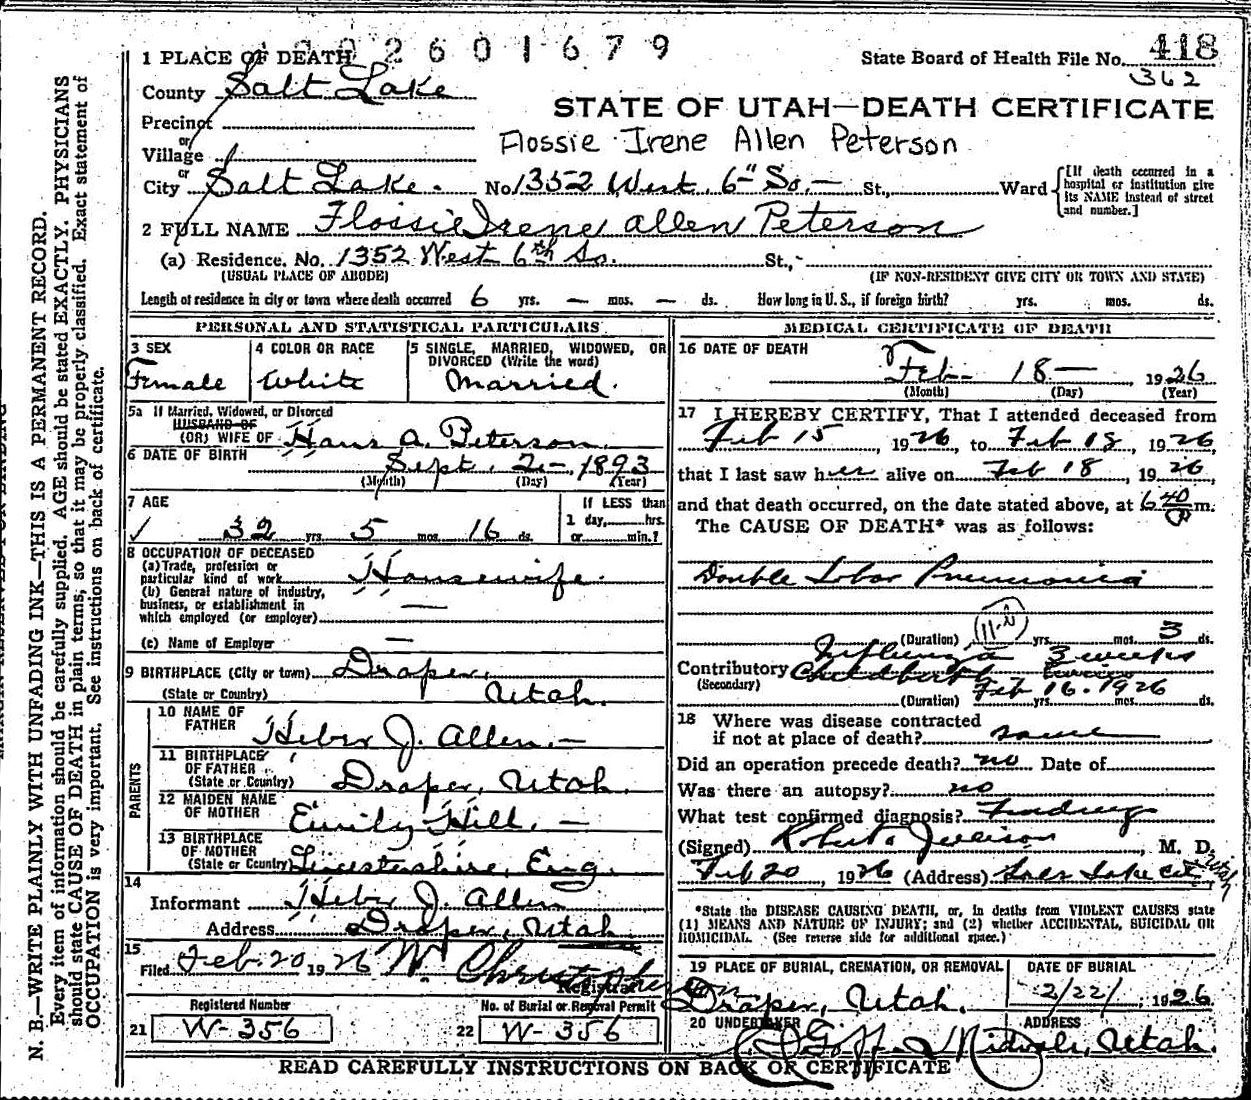 2601679
1 PLACE OF DEATH
State Board of Health File No. 418
362
County Salt Lake
STATE OF UTAH—DEATH CERTIFICATE
Precinct
or
Flossie Irene Allen Peterson
Village
or
City Salt Lake. No. 1352 West 6" So.— St., Ward
[If death occurred in a hospital or institution give its NAME instead of street and number.]
2 FULL NAME Flossie Irene Allen Peterson
(a) Residence. No. 1352 West 6th So. St.,
(USUAL PLACE OF ABODE) (IF NON-RESIDENT GIVE CITY OR TOWN AND STATE)
Length of residence in city or town where death occurred 6 yrs. — mos. — ds. How long in U. S., if foreign birth? yrs. mos. ds.
PERSONAL AND STATISTICAL PARTICULARS
3 SEX
Female
4 COLOR OR RACE
White
5 SINGLE, MARRIED, WIDOWED, OR
DIVORCED (Write the word)
Married.
5a If Married, Widowed, or Divorced
HUSBAND OF
(OR) WIFE OF Hans A. Peterson.
6 DATE OF BIRTH Sept. 2—, 1893
(Month) (Day) (Year)
7 AGE
32 yrs 5 mos. 16 ds.
If LESS than
1 day, hrs.
or min.?
8 OCCUPATION OF DECEASED
(a) Trade, profession or
particular kind of work Housewife.
(b) General nature of industry,
business, or establishment in —
which employed (or employer)
(c) Name of Employer —
9 BIRTHPLACE (City or town) Draper,
(State or Country) Utah.
PARENTS
10 NAME OF
FATHER Heber J. Allen.—
11 BIRTHPLACE
OF FATHER
(State or Country) Draper, Utah.
12 MAIDEN NAME
OF MOTHER Emily Hill. —
13 BIRTHPLACE
OF MOTHER
(State or Country) Leicestershire, Eng.
14
Informant Heber J. Allen
Address Draper, Utah
15
Filed Feb. 20 1926 W. Christopherson
Registrar
Registered Number
21 W-356
No. of Burial or Removal Permit
22 W-356
MEDICAL CERTIFICATE OF DEATH
16 DATE OF DEATH
Feb- 18— 1926
(Month) (Day) (Year)
17 I HEREBY CERTIFY, That I attended deceased from
Feb 15, 1926 to Feb 18, 1926
that I last saw her alive on Feb 18, 1926
and that death occurred, on the date stated above, at 640 P m.
The CAUSE OF DEATH* was as follows:
Double Lobar Pneumonia
(Duration) yrs. mos. 3 ds.
Contributory Influenza 3 weeks
(Secondary) Childbirth
(Duration) Feb 16. 1926 yrs. mos. ds.
18 Where was disease contracted
if not at place of death? same
Did an operation precede death? no Date of
Was there an autopsy? no
What test confirmed diagnosis? Findings
(Signed) Robert, M. D.
Feb 20, 1926 (Address) Salt Lake City, Utah
*State the DISEASE CAUSING DEATH, or, in deaths from VIOLENT CAUSES state
(1) MEANS AND NATURE OF INJURY; and (2) whether ACCIDENTAL, SUICIDAL OR
HOMICIDAL. (See reverse side for additional space.)
19 PLACE OF BURIAL, CREMATION, OR REMOVAL
Draper, Utah.
DATE OF BURIAL
2/22/, 1926
20 UNDERTAKER
Goff
ADDRESS
Midvale, Utah.
READ CAREFULLY INSTRUCTIONS ON BACK OF CERTIFICATE
N. B.—WRITE PLAINLY WITH UNFADING INK—THIS IS A PERMANENT RECORD.
Every item of information should be carefully supplied. AGE should be stated EXACTLY. PHYSICIANS
should state CAUSE OF DEATH in plain terms, so that it may be properly classified. Exact statement of
OCCUPATION is very important. See instructions on back of certificate.